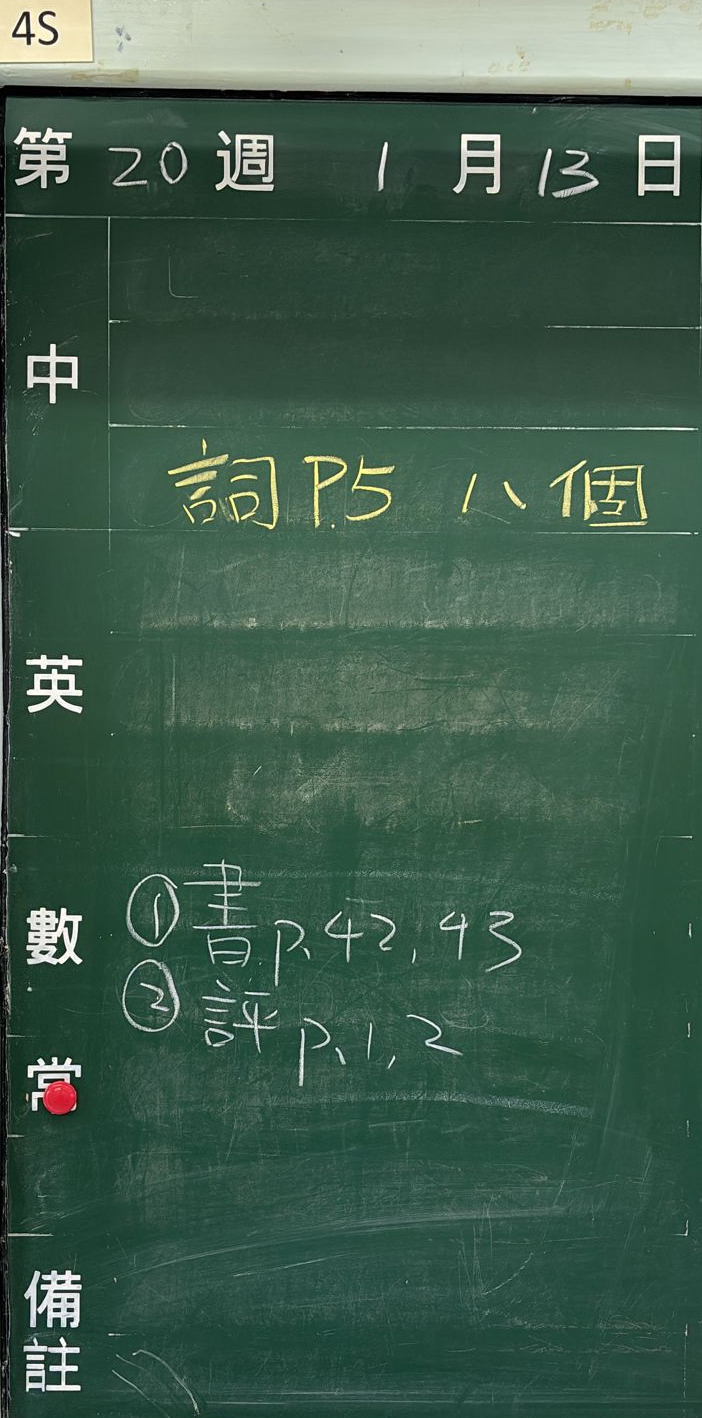 4S
第 20 週 1 月 13 日
中
詞 P.5 八個
英
數
① 書 p.42, 43
② 評 p.1, 2
常
備註